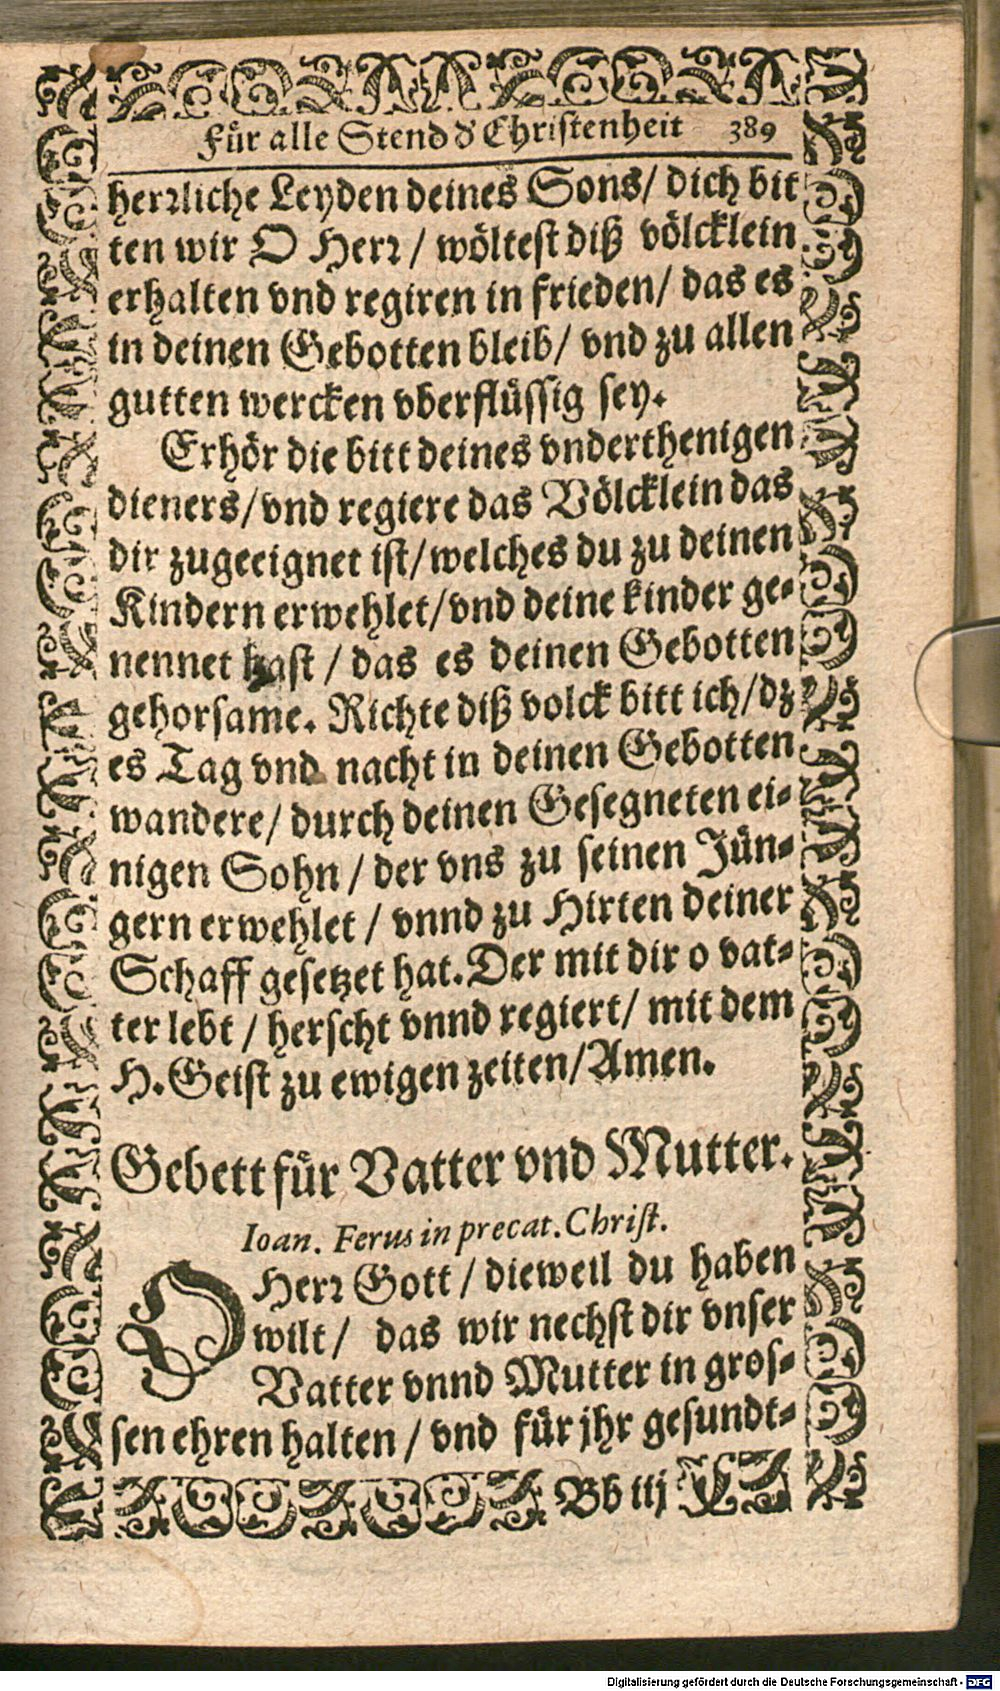 Für alle Stend d' Christenheit 389
herrliche Leyden deines Sons/ dich bit
ten wir O Herr / wöltest diß völcklein
erhalten vnd regiren in frieden/ das es
in deinen Gebotten bleib/ vnd zu allen
gutten wercken vberflüssig sey.
Erhör die bitt deines vnderthenigen
dieners/ vnd regiere das Völcklein das
dir zugeeignet ist/ welches du zu deinen
Kindern erwehlet/ vnd deine kinder ge-
nennet hast / das es deinen Gebotten
gehorsame. Richte diß volck bitt ich/ dz
es Tag vnd nacht in deinen Gebotten
wandere/ durch deinen Gesegneten ei-
nigen Sohn / der vns zu seinen Jün-
gern erwehlet / vnnd zu Hirten deiner
Schaff gesetzet hat. Der mit dir o vat-
ter lebt / herscht vnnd regiert/ mit dem
H. Geist zu ewigen zeiten/ Amen.
Gebett für Vatter vnd Mutter.
Ioan. Ferus in precat. Christ.
O Herr Gott / dieweil du haben
wilt / das wir nechst dir vnser
Vatter vnnd Mutter in gros-
sen ehren halten / vnd für jhr gesundt-
Bb iij
Digitalisierung gefördert durch die Deutsche Forschungsgemeinschaft - DFG